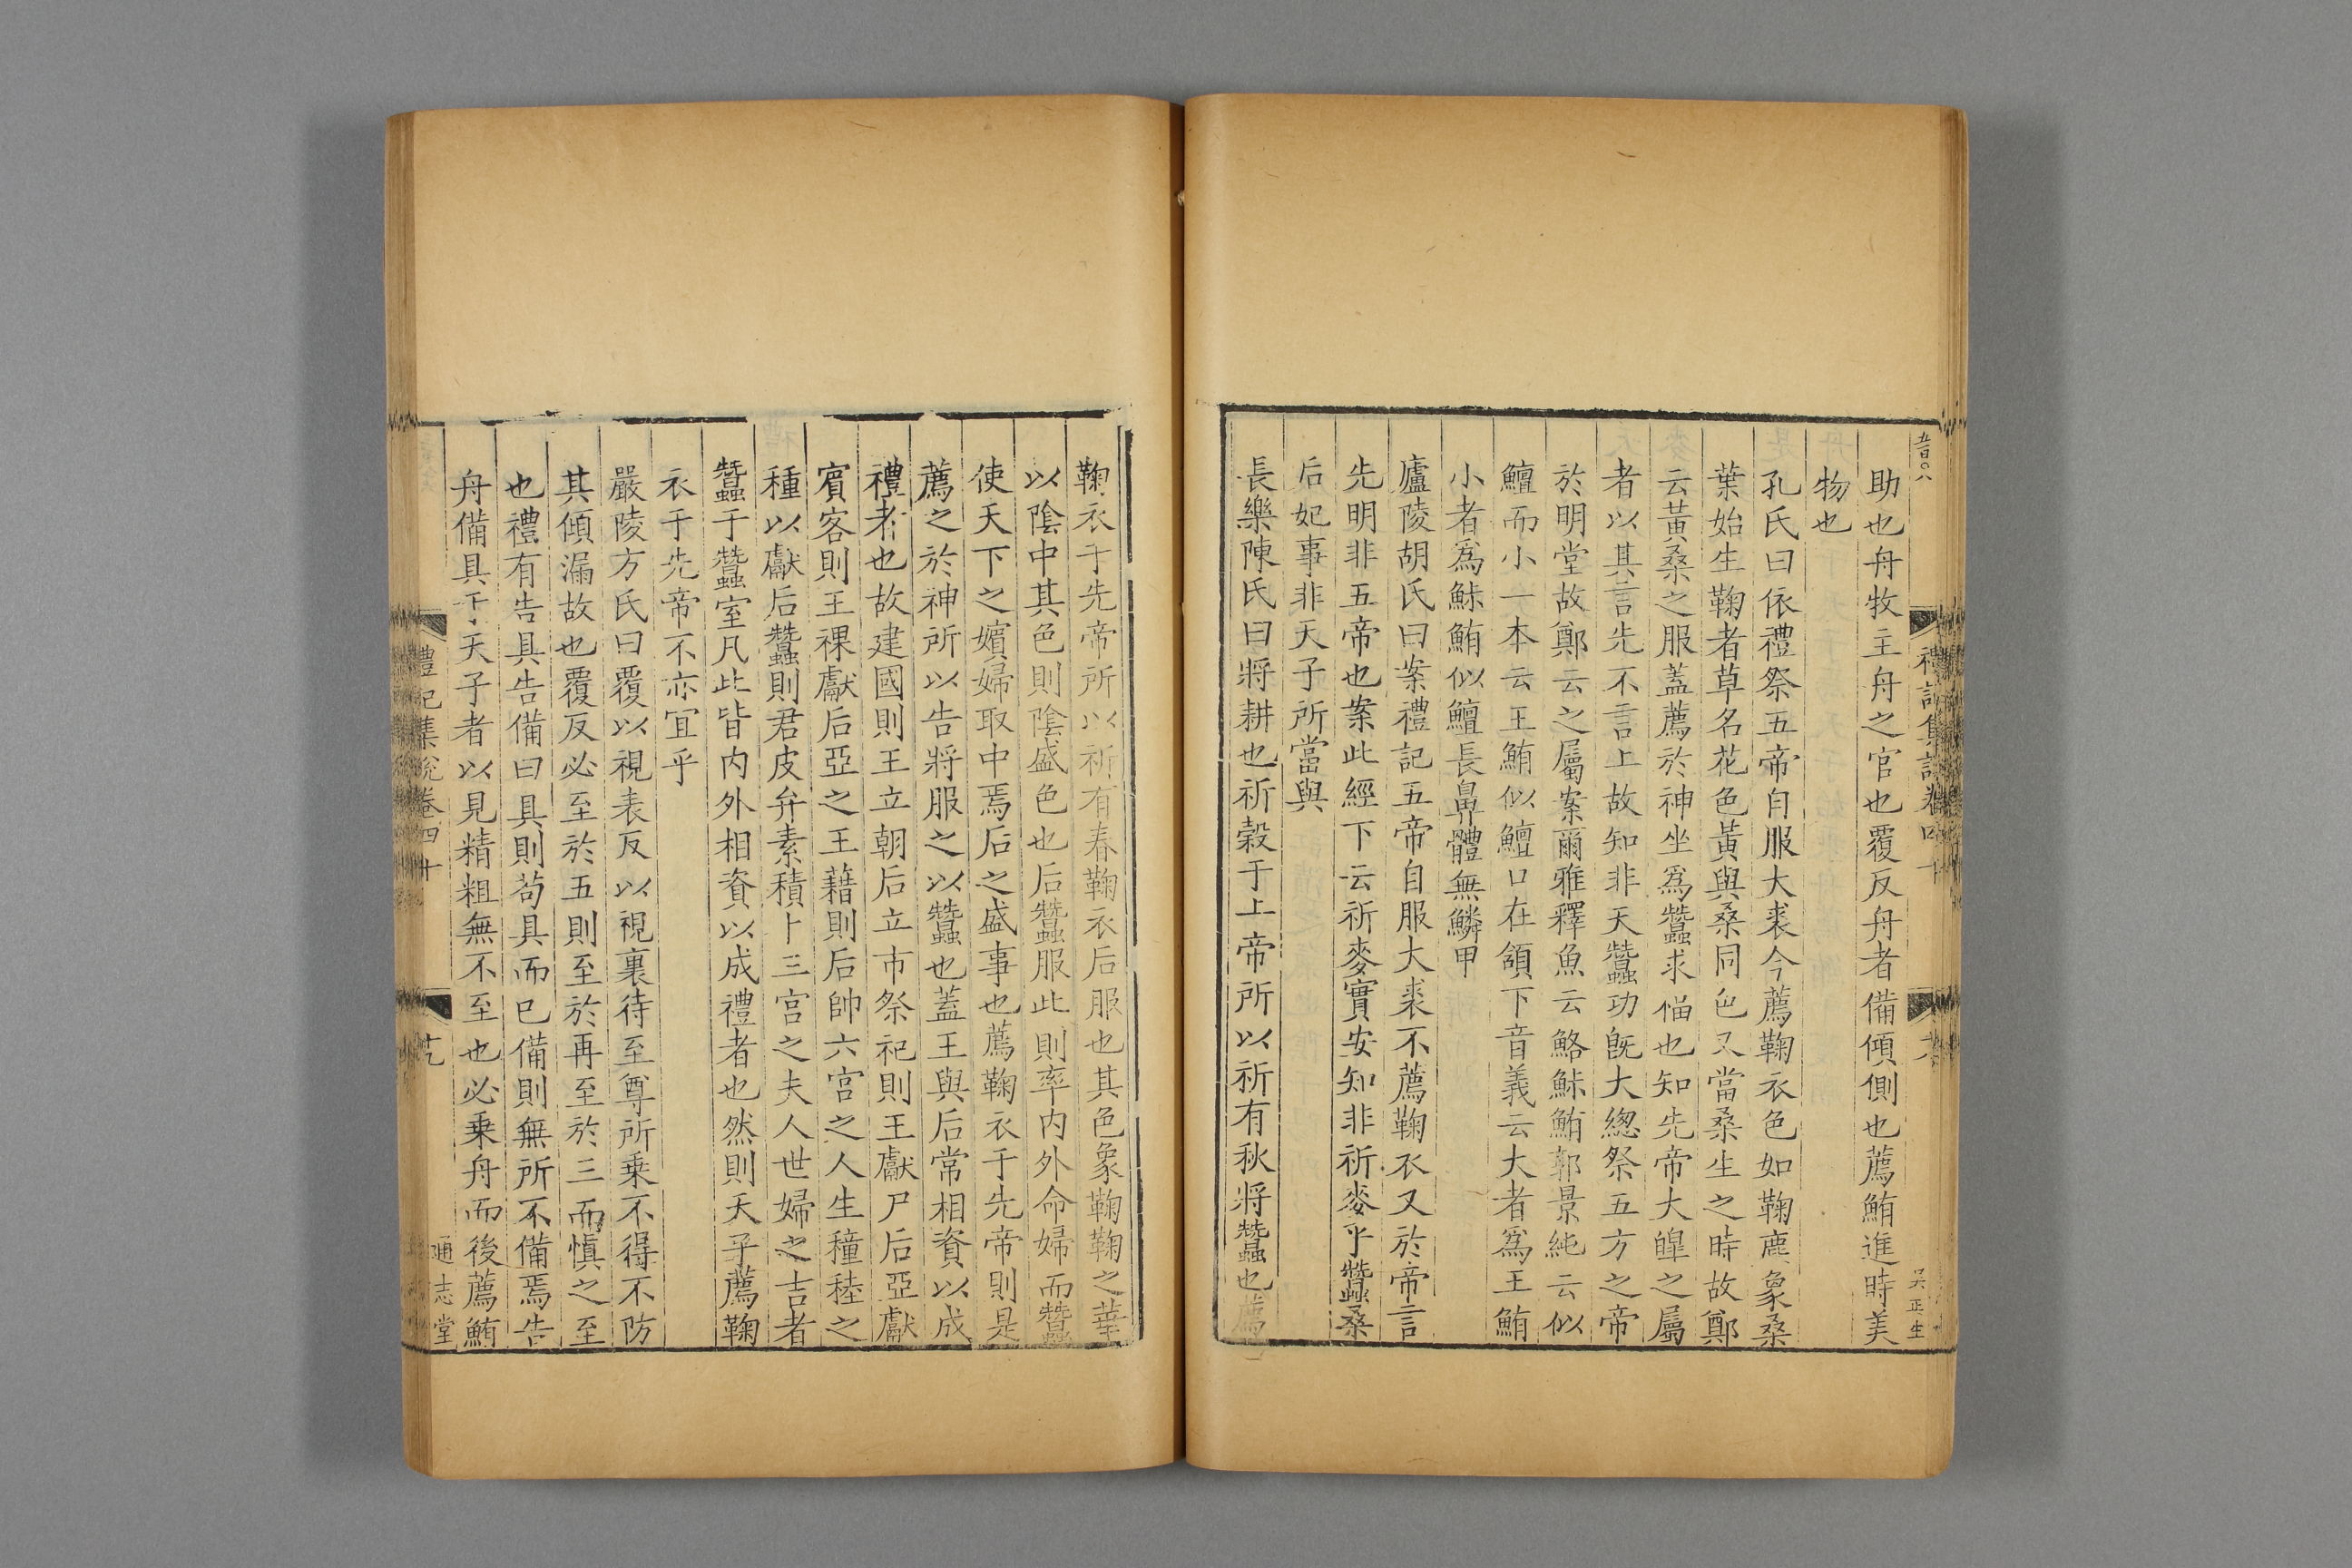 助也舟牧主舟之官也覆反舟者備傾側也薦鮪進時美
物也
孔氏曰依禮祭五帝自服大裘今薦鞠衣色如鞠塵象桑
葉始生鞠者草名花色黃與桑同色又當桑生之時故鄭
云黃桑之服蓋薦於神坐爲蠶求福也知先帝大皥之屬
者以其言先不言上故知非天蠶功旣大緫祭五方之帝
於明堂故鄭云之屬案爾雅釋魚云鮥鮛鮪郭景純云似
鱣而小一本云王鮪似鱣口在頷下音義云大者爲王鮪
小者爲鮛鮪似鱣長鼻體無鱗甲
廬陵胡氏曰案禮記五帝自服大裘不薦鞠衣又於帝言
先明非五帝也案此經下云祈麥實安知非祈麥乎蠶桑
后妃事非天子所當與
長樂陳氏曰將耕也祈穀于上帝所以祈有秋將蠶也薦
鞠衣于先帝所以祈有春鞠衣后服也其色象鞠鞠之華
以陰中其色則陰盛色也后蠶服此則率内外命婦而蠶
使天下之嬪婦取中焉后之盛事也薦鞠衣于先帝則是
薦之於神所以告將服之以蠶也蓋王與后常相資以成
禮者也故建國則王立朝后立市祭祀則王獻尸后亞獻
賓客則王祼獻后亞之王藉則后帥六宮之人生穜稑之
種以獻后蠶則君皮弁素積卜三宮之夫人世婦之吉者
蠶于蠶室凡此皆内外相資以成禮者也然則天子薦鞠
衣于先帝不亦宜乎
嚴陵方氏曰覆以視表反以視裏待至尊所乗不得不防
其傾漏故也覆反必至於五則至於再至於三而愼之至
也禮有告具告備曰具則苟具而已備則無所不備焉告
舟備具于天子者以見精粗無不至也必乗舟而後薦鮪
禮記集說卷四十
通志堂